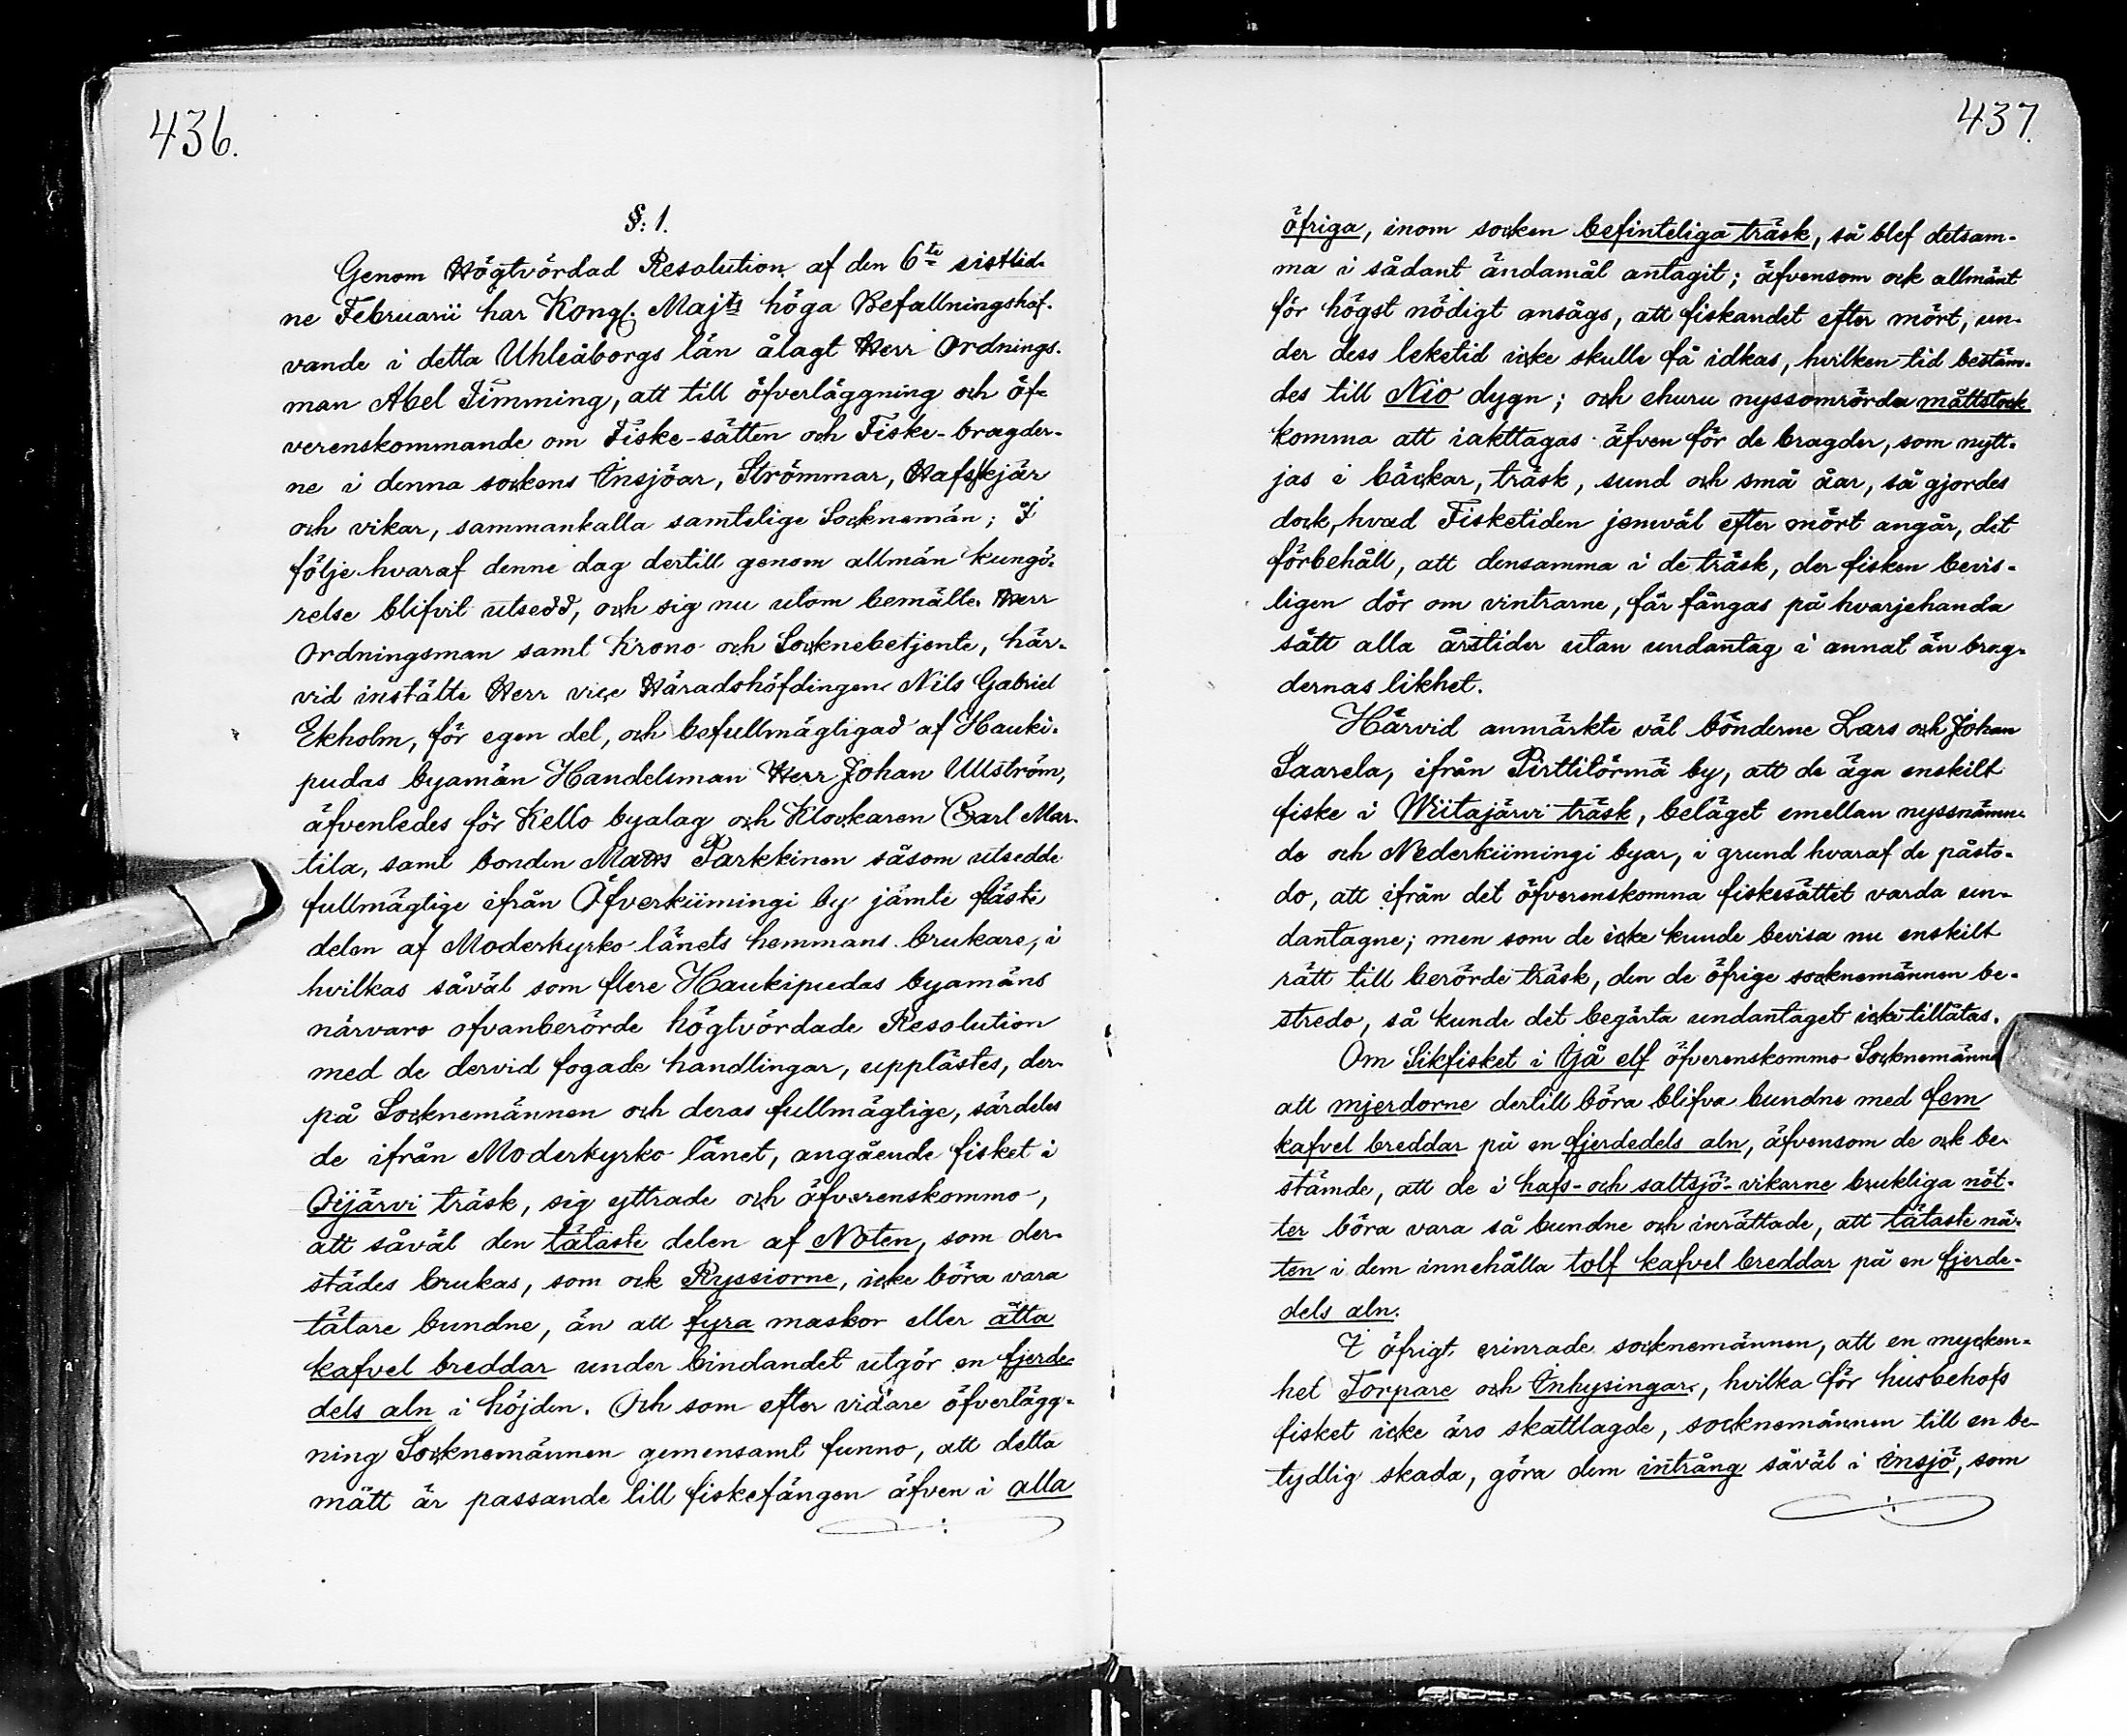 436.
§: 1.
Genom Högtvördad Resolution af den 6te sistlid-
ne Februarii har Kongl. Majts höga Befallningshaf-
vande i detta Uhleåborgs län ålagt Herr Ordnings-
man Abel Timming, att till öfverläggning och öf-
verenskommande om Fiske-sätten och Fiske-bragder-
ne i denna sockens Insjöar, Strömmar, Hafsskjär
och vikar, sammankalla samtelige Socknemän; I
följe hvaraf denne dag dertill genom allmän kungö-
relse blifvit utsedd, och sig nu utom bemälte Herr
Ordningsman samt Krono och Socknebetjente, här-
vid instälte Herr vice Häradshöfdingen Nils Gabriel
Ekholm, för egen del, och befullmägtigad af Hauki-
pudas byamän Handelsman Herr Johan Ullström,
äfvenledes för Kello byalag och Klockaren Carl Mar-
tila, samt bonden Mats Parkkinen såsom utsedde
fullmägtige ifrån Öfverkiimingi by jämte flästе
delen af Moderkyrko länets hemmans brukare, i
hvilkas såväl som flere Haukipudas byamäns
närvaro ofvanberörde högtvördade Resolution
med de dervid fogade handlingar, upplästes, der-
på Socknemännen och deras fullmägtige, särdeles
de ifrån Moderkyrko länet, angående fisket i
Oijärvi träsk, sig yttrade och öfverenskommo,
att såväl den tätaste delen af Noten, som der-
städes brukas, som ock Ryssiorne, icke böra vara
tätare bundne, än att fyra maskor eller åtta
kafvel breddar under bindandet utgör en fjerde-
dels aln i höjden. Och som efter vidare öfverlägg-
ning Socknemännen gemensamt funno, att detta
mått är passande till fiskefången äfven i alla
437.
öfriga, inom socken befinteliga träsk, så blef detsam-
ma i sådant ändamål antagit; äfvensom ock allmänt
för högst nödigt ansågs, att fiskandet efter mört, un-
der dess leketid icke skulle få idkas, hvilken tid bestäm-
des till Nio dygn; och ehuru nyssomrörda måttstock
komma att iakttagas äfven för de bragder, som nytt-
jas i bäckar, träsk, sund och små åar, så gjordes
dock, hvad Fisketiden jemväl efter mört angår, det
förbehåll, att densamma i de träsk, der fisken bevis-
ligen dör om vintrarne, får fångas på hvarjehanda
sätt alla årstider utan undantag i annat än brag-
dernas likhet.
Härvid anmärkte väl bönderne Lars och Johan
Saarela, ifrån Pirttitörmä by, att de äga enskilt
fiske i Wiitajärvi träsk, beläget emellan nyssnämn-
de och Nederkiimingi byar, i grund hvaraf de påsto-
do, att ifrån det öfverenskomna fiskesättet varda un-
dantagne; men som de icke kunde bevisa nu enskilt
rätt till berörde träsk, den de öfrige socknemännen be-
stredo, så kunde det begärta undantaget icke tillåtas.
Om Sikfisket i Ijå elf öfverenskommo Socknemänne
att mjerdorne dertill böra blifva bundne med fem
kafvel breddar på en fjerdedels aln, äfvensom de ock be-
stämde, att de i hafs- och saltsjö-vikarne brukliga nöt-
ter böra vara så bundne och inrättade, att tätaste nä-
ten i dem innehålla tolf kafvel breddar på en fjerde-
dels aln.
I öfrigt erinrade socknemännen, att en mycken-
het Torpare och Inhysingar, hvilka för husbehofs
fisket icke äro skattlagde, socknemännen till en be-
tydlig skada, göra dem intrång såväl i insjö, som